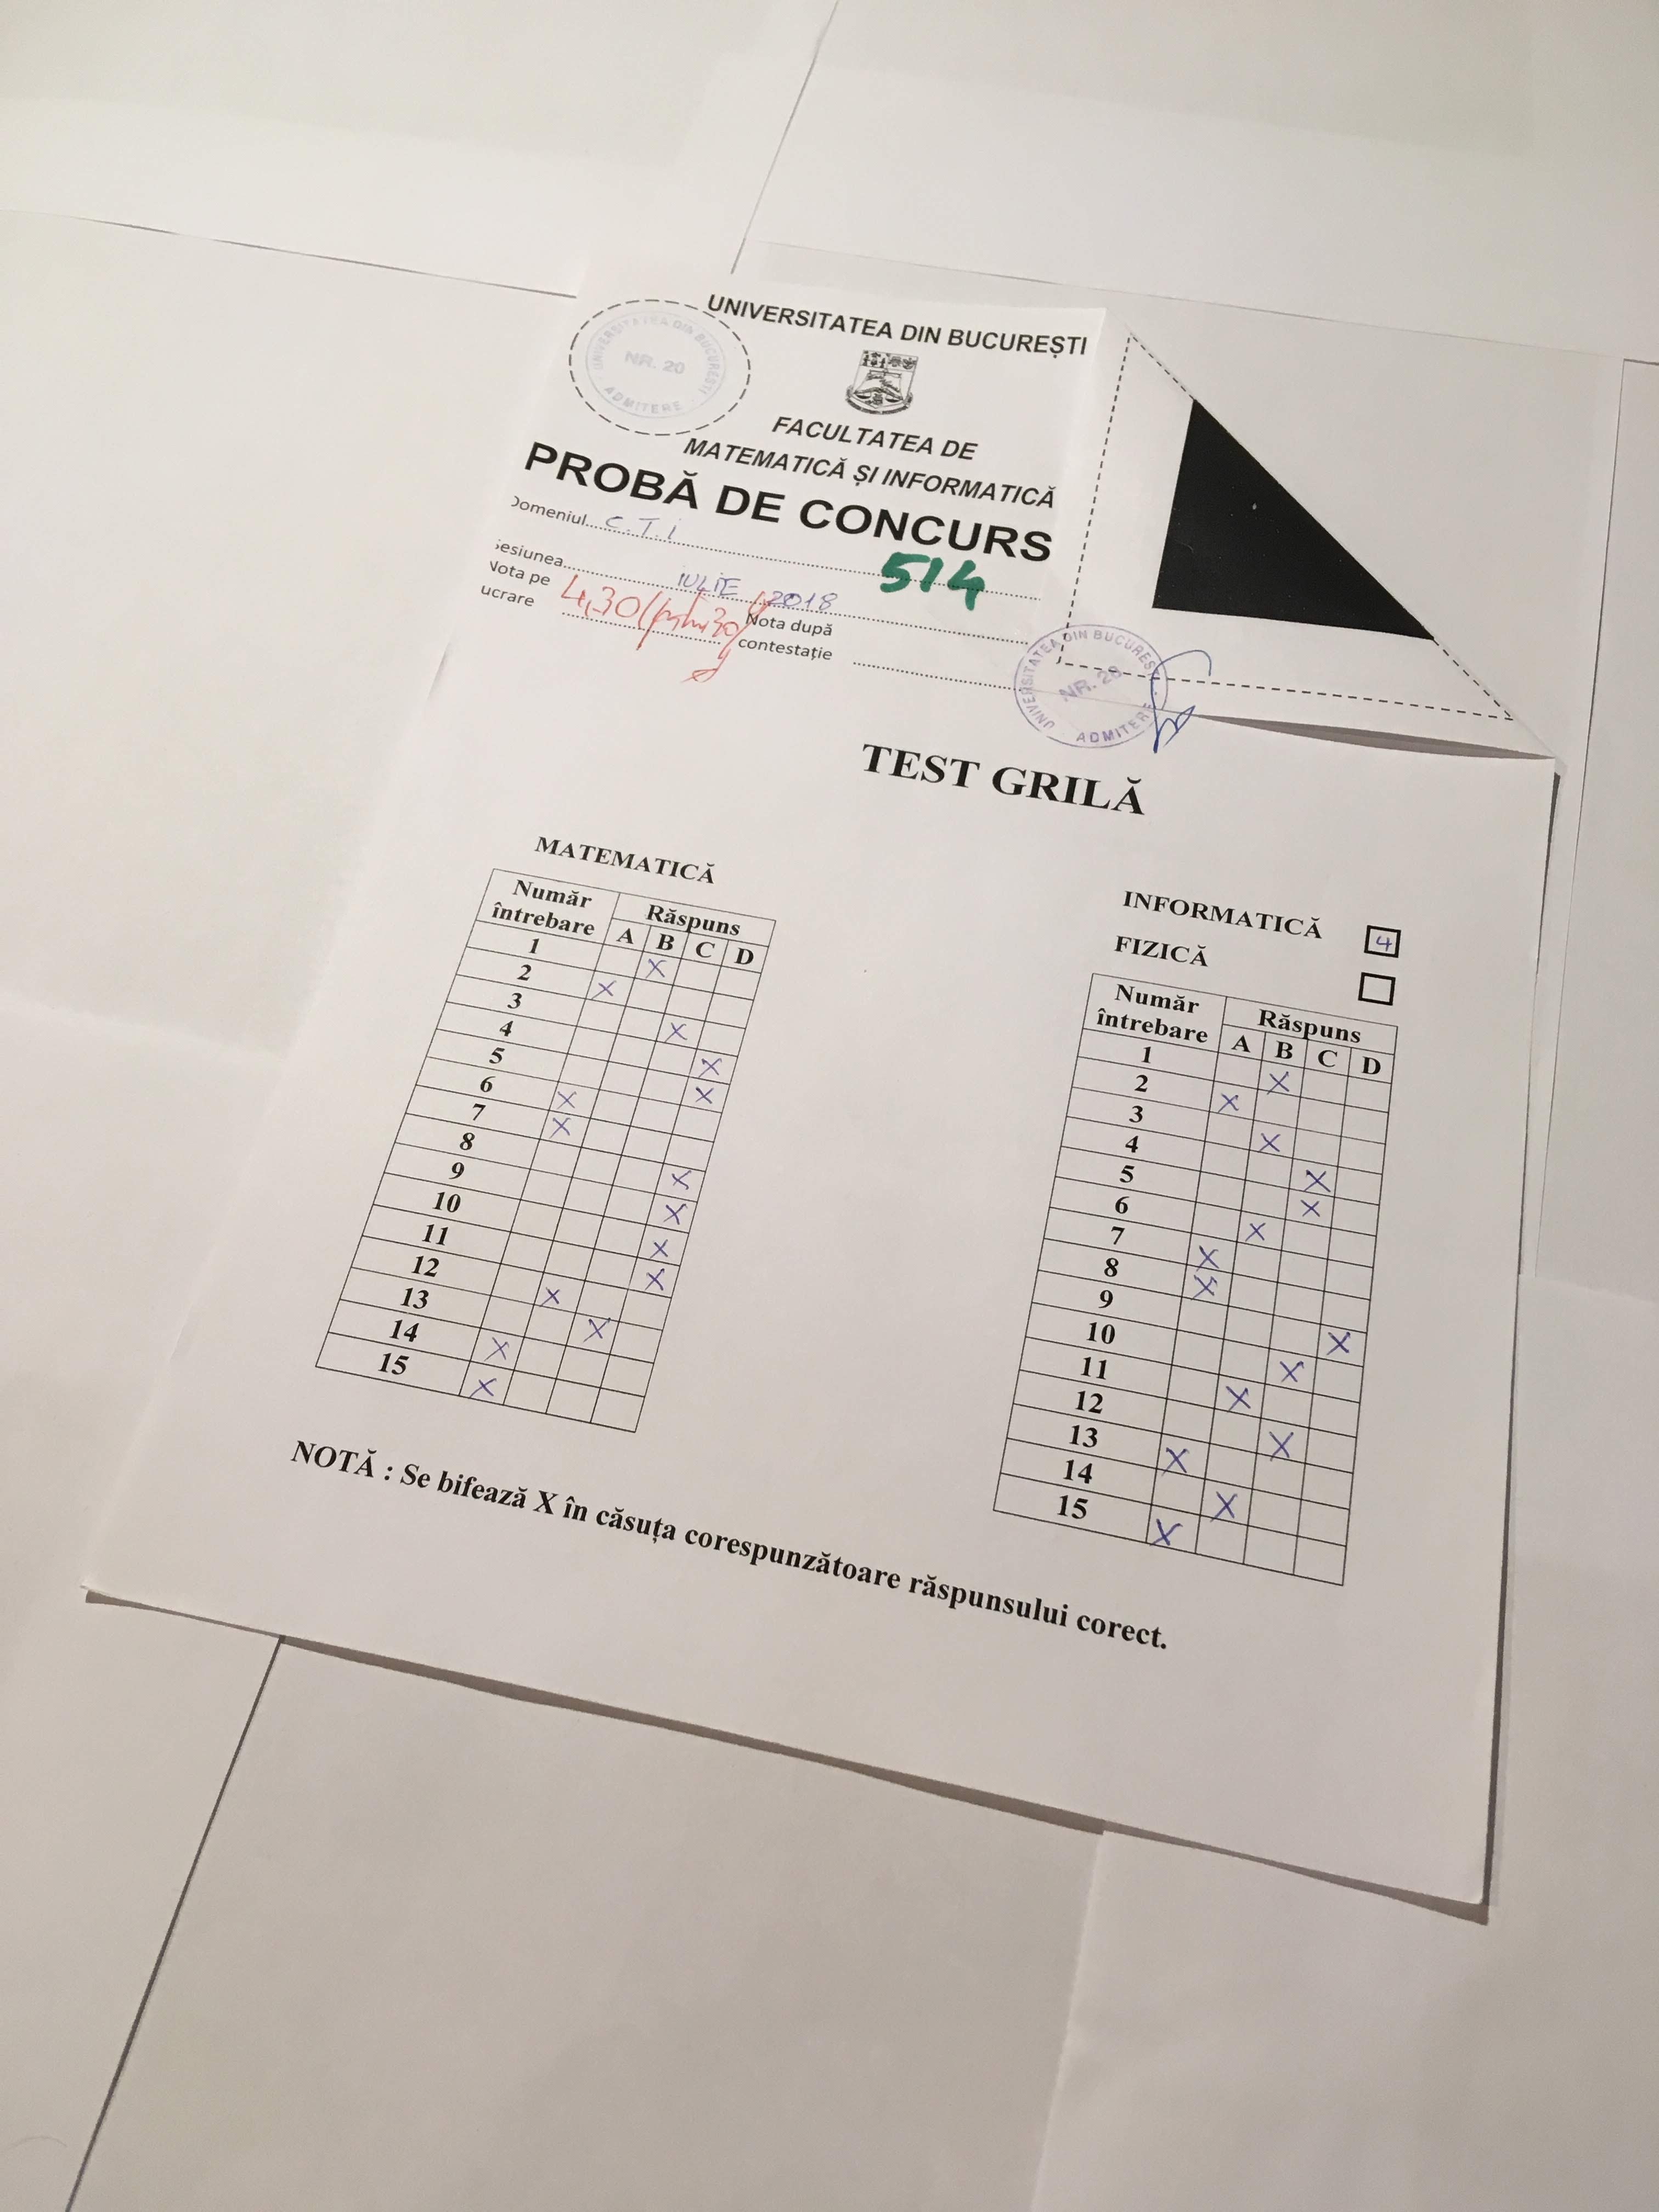 UNIVERSITATEA DIN BUCUREȘTI
UNIVERSITATEA DIN BUCUREȘTI
NR. 20
ADMITERE
FACULTATEA DE
MATEMATICĂ ȘI INFORMATICĂ
PROBĂ DE CONCURS
Domeniul C.T.I
514
Sesiunea IULIE 2018
Nota pe
ucrare 4,30
Nota după
contestație
UNIVERSITATEA DIN BUCUREȘTI
NR. 20
ADMITERE
TEST GRILĂ
MATEMATICĂ
Număr
întrebare
Răspuns
A B C D
1 X
2 X
3 X
4 X
5 X
6 X
7 X
8 X
9 X
10 X
11 X
12 X
13 X
14 X
15 X
INFORMATICĂ 4
FIZICĂ
Număr
întrebare
Răspuns
A B C D
1 X
2 X
3 X
4 X
5 X
6 X
7 X
8 X
9 X
10 X
11 X
12 X
13 X
14 X
15 X
NOTĂ : Se bifează X în căsuța corespunzătoare răspunsului corect.